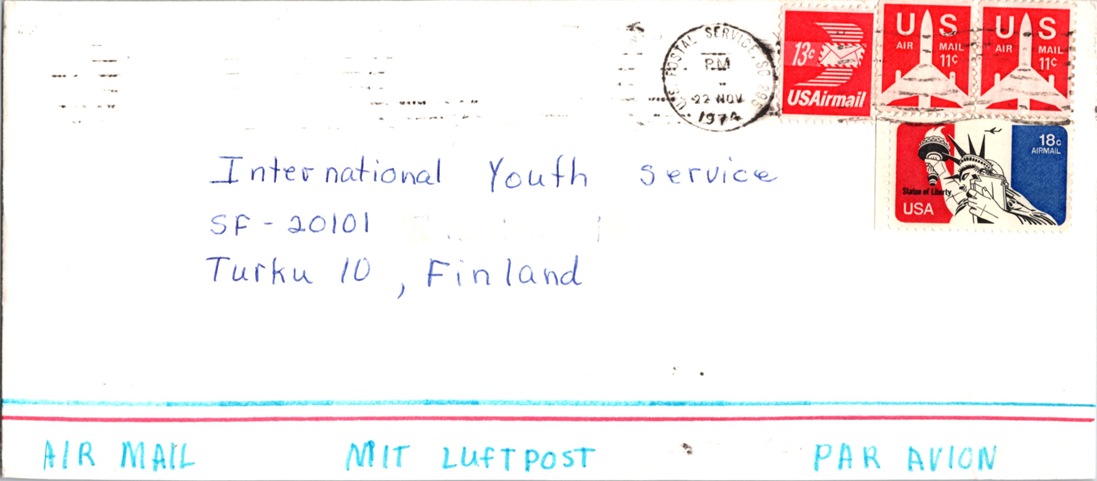 U.S. POSTAL SERVICE, SC
PM
22 NOV
1974
13c
USAirmail
US
AIR MAIL
11c
US
AIR MAIL
11c
18c
AIRMAIL
Statue of Liberty
USA
International Youth Service
SF-20101
Turku 10, Finland
AIR MAIL MIT LUFTPOST PAR AVION